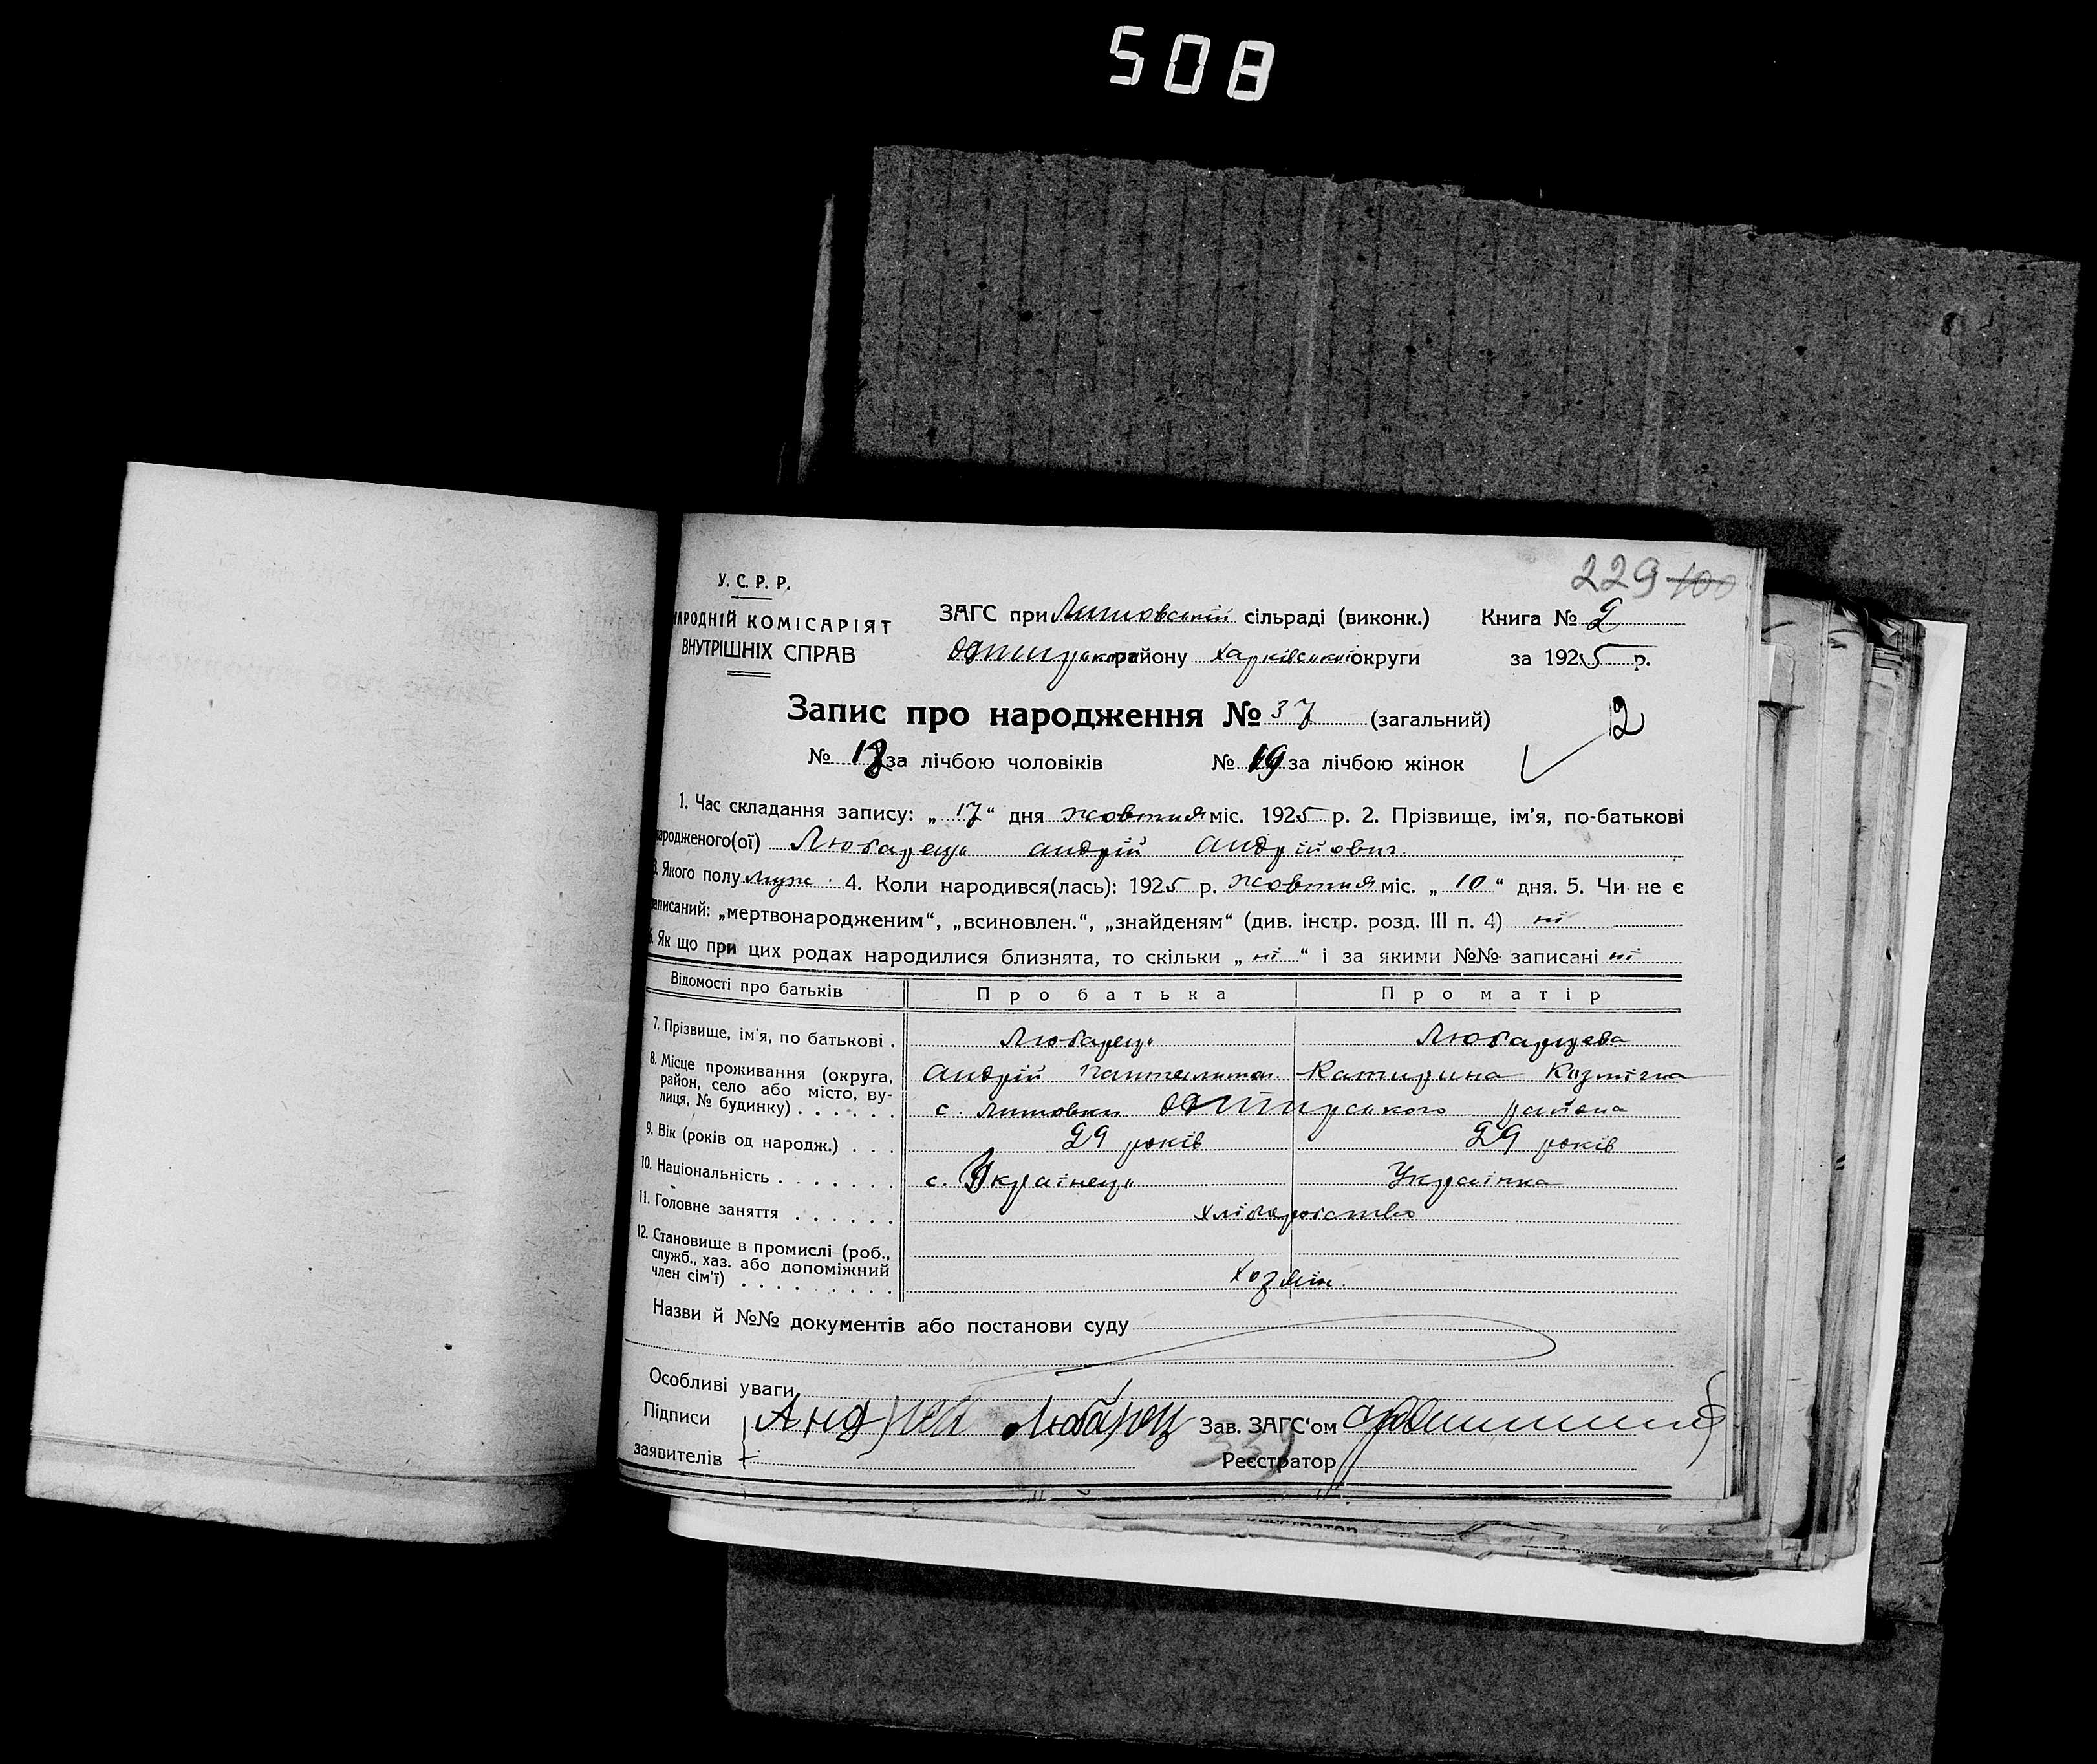 508
229 100
У. С. Р. Р.
НАРОДНІЙ КОМІСАРІЯТ
ВНУТРІШНІХ СПРАВ
ЗАГС при Литовській сільраді (виконк.) Книга № 2
району Харківської округи за 1925 р.
Запис про народження № 37 (загальний)
2
№ 17 за лічбою чоловіків № 19 за лічбою жінок
1. Час складання запису: „ 17 “ дня жовтня міс. 1925 р. 2. Прізвище, ім'я, по-батькові
народженого(ої) Любарець андрій андрійович.
3. Якого полу муж. 4. Коли народився(лась): 1925 р. жовтня міс. „ 10 “ дня. 5. Чи не є
записаний: „мертвонародженим“, „всиновлен.“, „знайденям“ (див. інстр. розд. III п. 4) ні
6. Як що при цих родах народилися близнята, то скільки „ ні “ і за якими №№ записані ні
Відомості про батьків Про батька Про матір
7. Прізвище, ім'я, по батькові . Любарець Любарцева
андрій Катирина
8. Місце проживання (округа,
район, село або місто, ву-
лиця, № будинку) . . . . . . с. Литовки района
9. Вік (років од народж.) . . . 29 років 29 років
10. Національність . . . . . . . с. Українець Українка
11. Головне заняття . . . . . . хліборобство
12. Становище в промислі (роб.,
служб., хаз. або допоміжний
член сім'ї) . . . . . . . . . хозяін.
Назви й №№ документів або постанови суду
Особливі уваги
Підписи Андрей Любарец Зав. ЗАГС'ом
заявителів Реєстратор
339